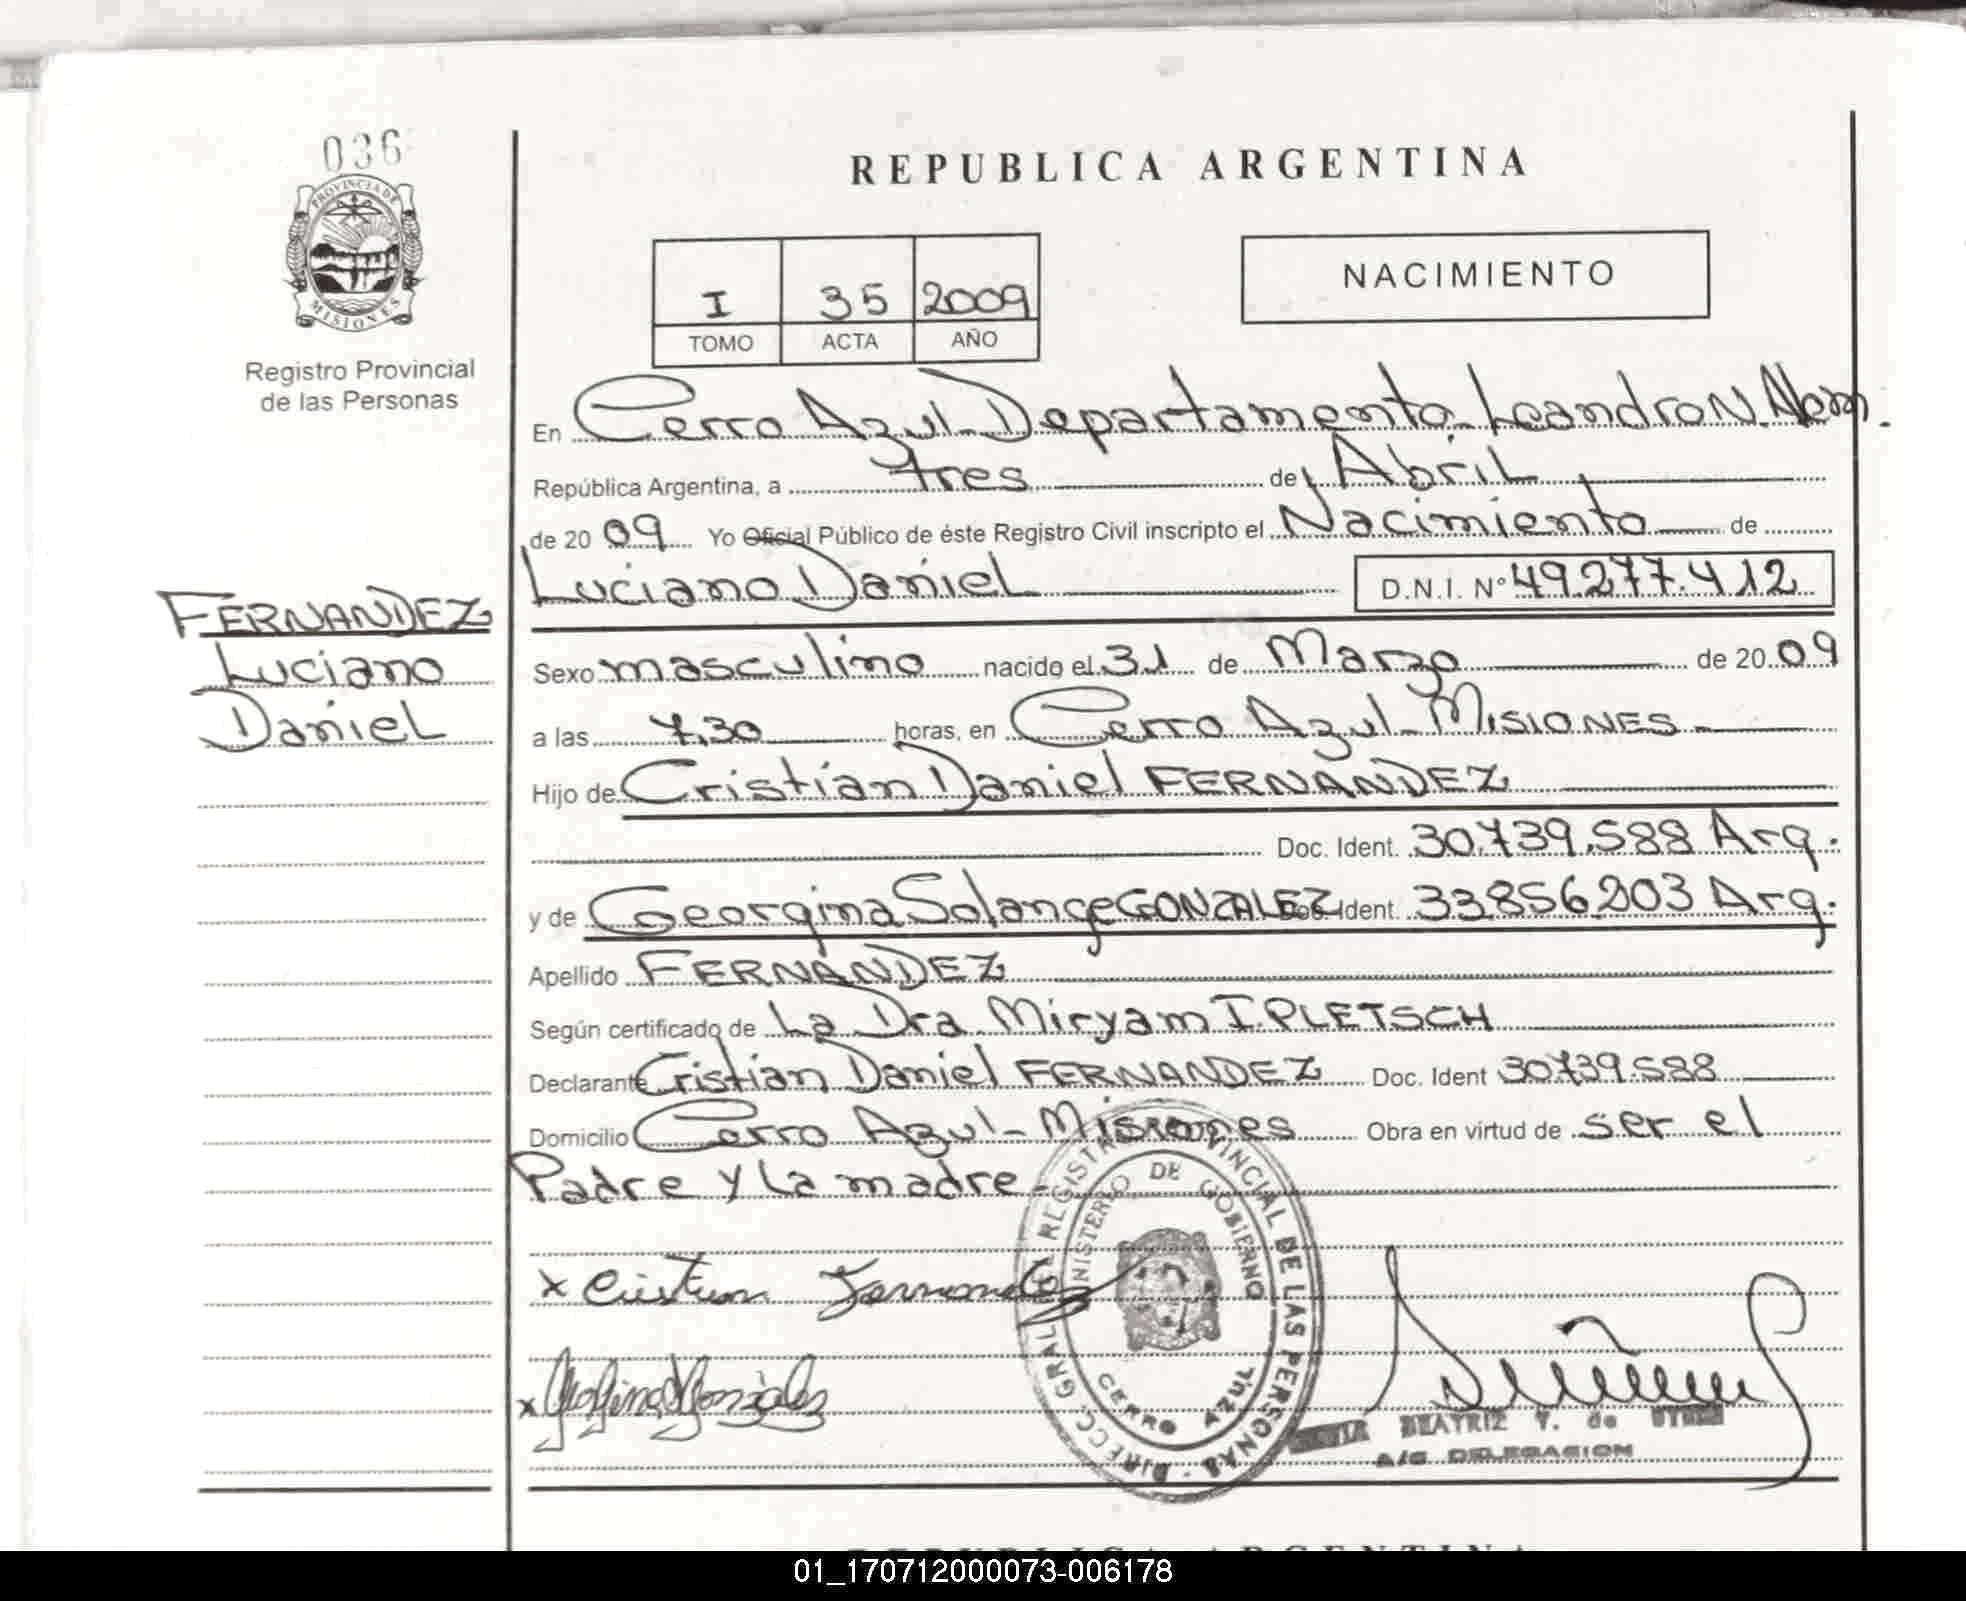 036
PROVINCIA DE
MISIONES
Registro Provincial
de las Personas
FERNANDEZ
Luciano
Daniel
REPUBLICA ARGENTINA
I 35 2009
TOMO ACTA AÑO
NACIMIENTO
En Cerro Azul-Departamento Leandro N. Alem.
República Argentina, a tres de Abril
de 20 09 Yo Oficial Público de éste Registro Civil inscripto el Nacimiento de
Luciano Daniel D.N.I. Nº 49.277.412
Sexo masculino nacido el 31 de Marzo de 20 09
a las 7,30 horas, en Cerro Azul-MISIONES
Hijo de Cristian Daniel FERNANDEZ
Doc. Ident. 30.739.588 Arg.
y de Georgina Solange GONZALEZ Doc. Ident. 33.856.203 Arg.
Apellido FERNANDEZ
Según certificado de La Dra Miryam I. PLETSCH
Declarante Cristian Daniel FERNANDEZ Doc. Ident 30.739.588
Domicilio Cerro Azul-Misiones Obra en virtud de ser el
Padre y La madre
x Cristian Fernandez
x Georgina Gonzalez
DIRECC. GRAL. REGISTRO PROVINCIAL DE LAS PERSONAS
MINISTERIO DE GOBIERNO
CERRO AZUL
BEATRIZ V. de
A/C DELEGACION
REPUBLICA ARGENTINA
01_170712000073-006178